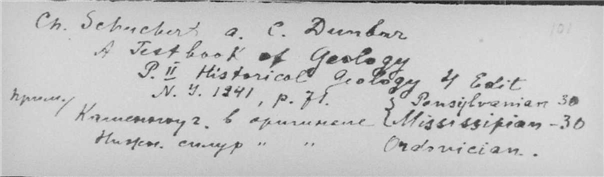 101
Ch. Schuchert a. C. Dunbar
A Textbook of Geology
P. II Historical Geology 4 Edit
N.Y. 1941, p. 71.
прим./ { Pensylvanian - 30
Каменноуг. в оригинале { Mississipian - 30
Нижн. силур " " Ordovician.